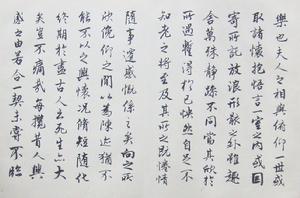 樂也夫人之相與俯仰一世或
取諸懷抱悟言一室之內或因
寄所託放浪形骸之外雖趣
舍萬殊靜躁不同當其欣於
所遇蹔得於己怏然自足不
知老之將至及其所之既惓情
隨事遷感慨係之矣向之所
欣俛仰之間以為陳迹猶不
能不以之興懷况脩短隨化
終期於盡古人云死生亦大
矣豈不痛哉每攬昔人興
感之由若合一契未嘗不臨